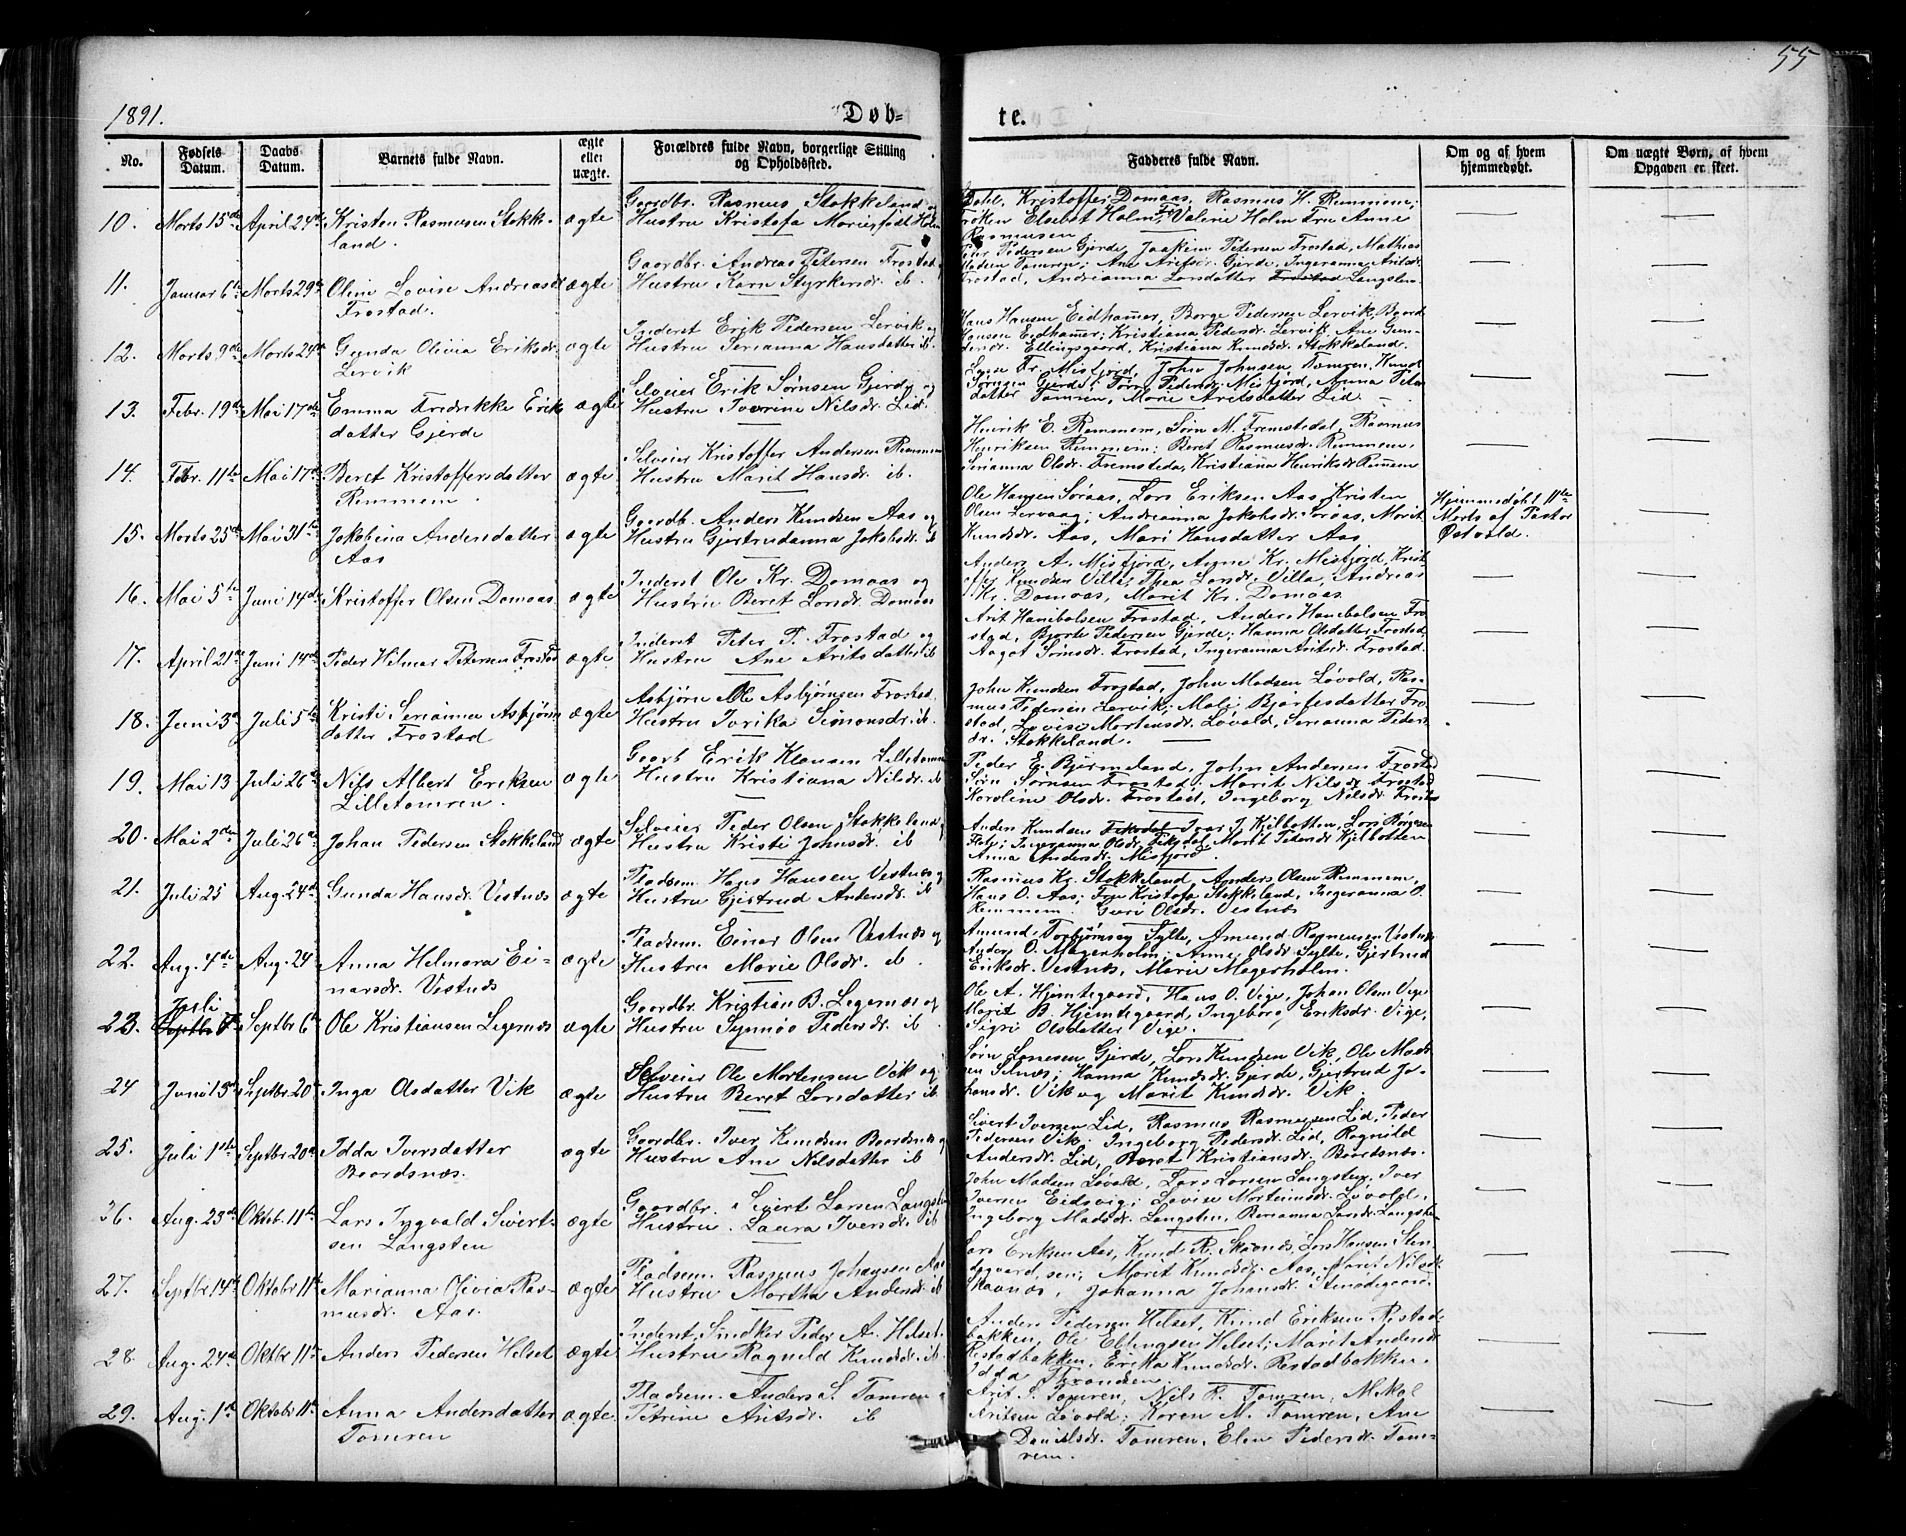 55
1891.
Døb-
te.
No.
Fødsels Datum.
Daabs Datum.
Barnets fulde Navn.
ægte eller uægte.
Forældres fulde Navn, borgerlige Stilling og Opholdssted.
Fadderes fulde Navn.
Om og af hvem hjemmedøbt.
Om uægte Børn, af hvem Opgaven er skeet.
10. Marts 15de April 24de Kristen Rasmusen Stokk- ægte Gaardbr. Rasmus Stokkeland og
land. Hustru Kristofa Marie født Holm
Dahl, Kristoffer Domaas, Rasmus H. Remmem;
Frøken Elsebet Holm, Valerie Holm Fru Anne
Rasmusen
11. Januar 6te Marts 29de Oline Lovise Andreasdr ægte Gaardbr. Andreas Petersen Frostad og
Frostad. Hustru Karn Styrkersdr. ib.
Peter Pedersen Gjerde, Joakim Petersen Frostad, Mathias
Madsen Tomren; Ane Aritsdr. Gjerde, Ingeranna Aritsdr.
Frostad, Andrianna Larsdatter Frostad Langsten.
12. Marts 9de Marts 29de Gunda Olivia Eriksdr. ægte Inderst Erik Pedersen Lervik og
Lervik Hustru Serianna Hansdatter ib.
Hans Hansen Eidhamer, Børge Pedersen Lervik, Baard
Hansen Eidhamer; Kristiana Pedersdr. Lervik, Ane Gun-
Ellingsgaard, Kristiana Knudsdr. Stokkeland.
13. Febr. 19de Mai 17de Emma Fredrikke Erik- ægte Selveier Erik Sørnsen Gjerde og
datter Gjerde Hustru Iverine Nilsdr. Lid.
Fr. Misfjord, John Johnsen Tomren, Knut
Sørnsen Gjerde; Pedersdr. Misfjord, Anna Peter
datter Tomren, Marie Aritsdatter Lid.
14. Febr. 11te Mai 17de Beret Kristoffersdatter ægte Selveier Kristoffer Andersen Remmem
Remmem. Hustru Marit Hansdr. ib.
Henrik E. Remmem, Sørn M. Fremstedal, Rasmus
Henriksen Remmem; Beret Rasmusdr. Remmem,
Serianna Olsdr. Fremsteda, Kristiana Henriksdr Remem
15. Marts 25de Mai 31te Jakobina Andersdatter ægte Gaardb. Anders Knudsen Aas og
Aas Hustru Gjertrudanna Jakobsdr. ib
Ole Hansen Søraas, Lars Eriksen Aas, Kristen
Olsen Lervaag; Andrianna Jakobsdr. Søraas, Marit
Knudsdr. Aas, Mari Hansdatter Aas
Hjemmedøbt 11te
Marts af Pastor
Østvold.
16. Mai 5te Juni 14de Kristoffer Olsen Domaas ægte Inderst Ole Kr. Domaas og
Hustru Beret Larsdr. Domaas
Anders A. Misfjord, Kr. Misfjord, Krist
offer Knudsen Villa; Thea Larsdr. Villa, Andreas
Kr. Domaas, Marit Kr. Domaas
17. April 21de Juni 14de Peder Hilmar Petersen Frostad ægte Inderst Peter P. Frostad og
Hustru Ane Aritsdatter ib
Arit Hanibalsen Frostad, Anders Hanibalsen Fro
stad, Bjørte Pedersen Gjerde; Hanna Olsdatter Frostad
Aagot Sørnsdr. Frostad, Ingeranna Aritsdr. Frostad.
18. Juni 3de Juli 5te Kristi Serianna Asbjørns ægte Asbjørn Ole Asbjørnsen Frostad.
datter Frostad Hustru Iverika Simonsdr. ib.
John Knudsen Frostad, John Madsen Løvold, Ras-
mus Pedersen Lervik; Mali Bjørtesdatter Fro
stad, Lovise Mortensdr. Løvold, Serianna Peder
dr. Stokkeland.
19. Mai 13 Juli 26de Nils Albert Eriksen ægte Gaarb Erik Klausen Lilletomren
Lilletomren. Hustru Kristiana Nilsdr. ib
Peder E. Bjermeland, John Andersen Frostad
Sørn Sørnsen Frostad, Marit Nilsdr. Frostad
Karoline Olsdr. Frostad, Ingeborg Nilsdr. Frostad
20. Mai 2den Juli 26de Johan Pedersen Stokkeland ægte Selveier Peder Olsen Stokkeland og
Hustru Kristi Johnsdr. ib
Anders Knudsen Fiksdal Ivar J. Kjelbotten, Lars Børgesen
Flate; Ingeranna Olsdr. Fiksdal, Marit Petersdr. Kjelbotten
Anna Andersdr. Misfjord.
21. Juli 25 Aug. 24de Gunda Hansdr. Vestnæs ægte Pladsem. Hans Hansen Vestnæs og
Hustru Gjertrud Andersdr. ib
Rasmus Kr. Stokkeland, Anders Olsen Remmem,
Hans O. Aas; Fru Kristofa Stokkeland, Ingeranna O.
Remmem. Guri Olsdr. Vestnæs
22. Aug. 4de Aug. 24 Anna Helmara Ei- ægte Pladsem. Einar Olsen Vestnæs og
narsdr. Vestnæs Hustru Marie Olsdr. ib.
Amund Torbjørnsen Sylte, Amund Rasmusen Vestnæs
Anders O. Magerholm; Anne Olsdr. Sylte, Gjertrud
Eriksdr. Vestnæs, Marie Magerholm.
23. Juli Septbr Septbr 6te Ole Kristiansen Legernæs ægte Gaardbr. Kristian B. Legernæs og
Hustru Synnøv Pedersdr. ib.
Ole A. Hjemtegaard, Hans O. Vige, Johan Olsen Vige
Marit B. Hjemtegaard, Ingeborg Eriksdr. Vige,
Sigri Olsdatter Vige.
24 Juni 15de Septbr. 20de Inga Olsdatter Vik ægte Selveier Ole Mortensen Vik og
Hustru Beret Larsdatter ib
Sørn Gjerde, Lars Knudsen Vik, Ole Mads
en Selnæs; Hanna Knudsdr. Gjerde, Gjertrud Jo-
hansdr. Vik og Marit Knudsdr. Vik.
25. Juli 1ste Septbr. 20de Idda Iversdatter ægte Gaardbr. Iver Knudsen Baardsnæs og
Baardsnæs. Hustru Ane Nilsdatter ib
Sivert Iversen Lid, Rasmus Rasmusen Lid, Peder
Pedersen Vik. Ingeborg Pedersdr. Lid, Ragnild
Andersdr. Lid, Beret Kristiansdr. Baardsnæs.
26. Aug. 23de Oktob. 11te Lars Ingvald Sivert- ægte Gaardbr. Sivert Larsen Langsten
sen Langsten Hustru Laura Iversdr. ib
John Madsen Løvold, Lars Larsen Langsten, Iver
Iversen Eidsvig; Lovise Mortensdr. Løvold,
Ingeborg Madsdr. Langsten, Berianna Larsdr. Langsten
27. Septbr. 14de Oktobr 11te Marianna Olivia Ras- ægte Pladsem. Rasmus Johansen Aas
musdr. Aas. Hustru Martha Andersdr. ib
Lars Eriksen Aas, Knud R. Skavnæs, Lars Hansen Sten
ødegaard, sen; Marit Knudsdr. Aas, Marit Nilsdr.
Skavnæs, Johanna Johansdr. Stenødegaard
28. Aug. 24de Oktbr. 11te Anders Pedersen Helset ægte Inderst, Snidker Peder A. Helset.
Hustru Ragnild Knudsdr. ib.
Anders Pedersen Helset, Knud Eriksen Restad-
bakken, Ole Ellingsen Helset; Marit Andersdr.
Restadbakken, Erika Knudsdr. Restadbakken
Idda
29. Aug. 1ste Oktobr 11te Anna Andersdatter ægte Pladsem. Anders S. Tomren og
Tomren Petrine Aritsdr. ib
Arit S. Tomren, Nils R. Tomren, Mikal
Aritsen Løvold; Karen M. Tomren, Ane
Danielsdr. Tomren, Elen Pedersdr. Tom-
ren.